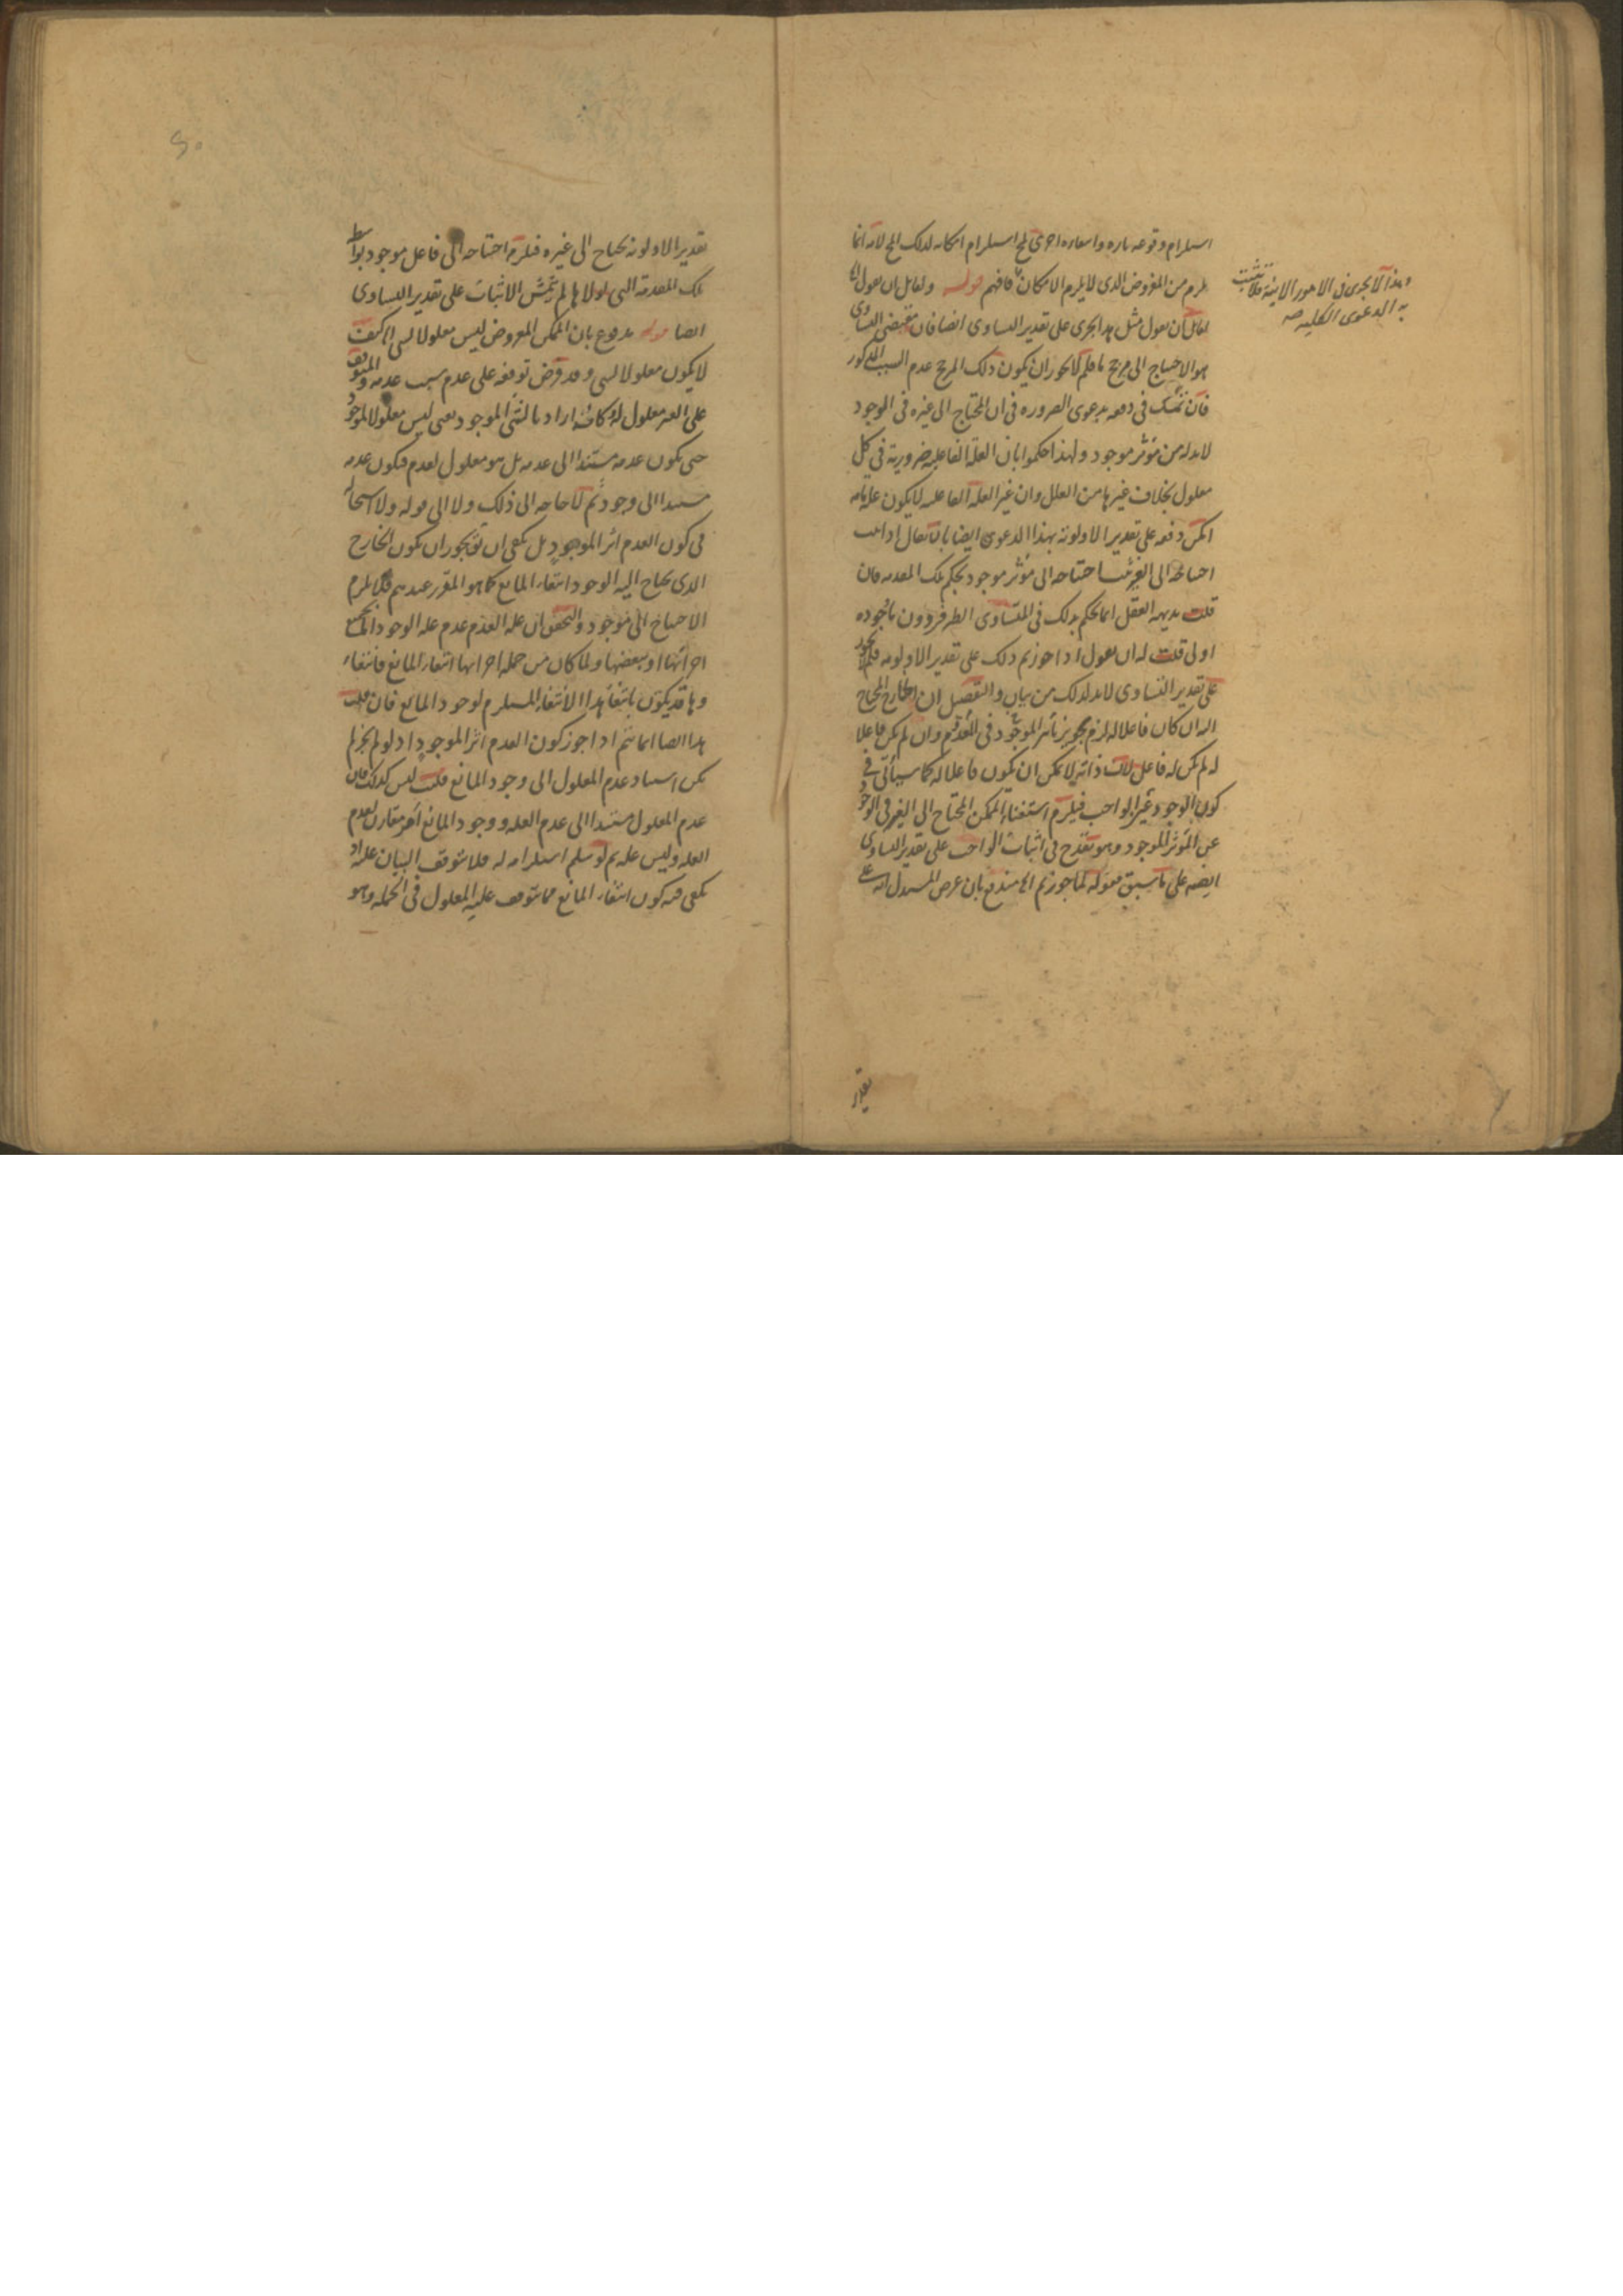 استلزام وقوعه تارة وانتفاءه اخرى لمح استلزام امكانه لذلك المح لانه انما
يلزم من المفروض الذى لا يلزم الامكان فافهم قوله ولقائل ان يقول الخ
لقائل ان يقول مثل هذا يجرى على تقدير التساوى ايضا فان مقتضى التساوى
هو الاحتياج الى مرجح ما فلم لا يجوز ان يكون ذلك المرجح عدم السبب المذكور
فان تمسك فى دفعه بدعوى الضرورة فى ان المحتاج الى غيره فى الوجود
لا بد له من مؤثر موجود ولهذا حكموا بان العلة الفاعلية ضرورية فى كل
معلول بخلاف غيرها من العلل وان غير العلة الفاعلية لا يكون علة تامة
امكن دفعه على تقدير الاولوية بهذا الدعوى ايضا بان يقال اذا ثبت
احتياجه الى الغير ثبت احتياجه الى مؤثر موجود بحكم تلك المقدمة فان
قلت بديهة العقل انما تحكم بذلك فى المتساوى الطرفين دون ما وجوده
اولى قلت له ان يقول اذا جوزتم ذلك على تقدير الاولوية فلم لا يجوز
على تقدير التساوى لا بد لذلك من بيان والتفصيل ان الخارج المحتاج
اليه ان كان فاعلا له لزم تجويز تأثير الموجود فى المعدوم وان لم يكن فاعلا
له لم يكن له فاعل لان ذاته لا يمكن ان يكون فاعلا له كما سيأتى فى
كون الوجود غير الواجب فيلزم استغناء الممكن المحتاج الى الغير فى الوجود
عن المؤثر الموجود وهو يقدح فى اثبات الواجب على تقدير التساوى
ايضا على ما سبق فقوله لما جوزتم الخ مندفع بان غرض المستدل انه على
وهذا لا يجرى فى الامور الاينية فلا تثبت
به الدعوى الكلية صح
تقدير
تقدير الاولوية يحتاج الى غيره فيلزم احتياجه الى فاعل موجود بواسطة
تلك المقدمة التى لولاها لم يتمش الاثبات على تقدير التساوى
ايضا قوله مدفوع بان الممكن المفروض ليس معلولا لشىء الخ كيف
لا يكون معلولا لشىء وقد فرض توقفه على عدم سبب عدمه والمتوقف
على الغير معلول له وكانه اراد بالشىء الموجود يعنى ليس معلولا لموجود
حتى يكون عدمه مستندا الى عدمه بل هو معلول لعدم فيكون عدمه
مستندا الى وجود ثم لا حاجة الى ذلك ولا الى قوله ولا استحالة
فى كون العدم اثر الموجود بل يكفى ان يق يجوز ان يكون الخارج
الذى يحتاج اليه الوجود انتفاء المانع كما هو المقرر عندهم فلا يلزم
الاحتياج الى موجود والتحقيق ان علة العدم عدم علة الوجود اما بجميع
اجزائها او ببعضها ولما كان من جملة اجزائها انتفاء المانع فانتفاء
وها قد يكون بانتفاء هذا الانتفاء المستلزم لوجود المانع فان قلت
هذا ايضا انما يتم اذا جوز كون العدم اثر الموجود اذ لو لم يجز لم
يكن استناد عدم المعلول الى وجود المانع قلت ليس كذلك فان
عدم المعلول مستندا الى عدم العلة ووجود المانع امر مقارن لعدم
العلة وليس علة ثم لو سلم استلزامه له فلا يتوقف البيان عليه اذ
يكفى فيه كون انتفاء المانع مما يتوقف عليه المعلول فى الجملة وهو